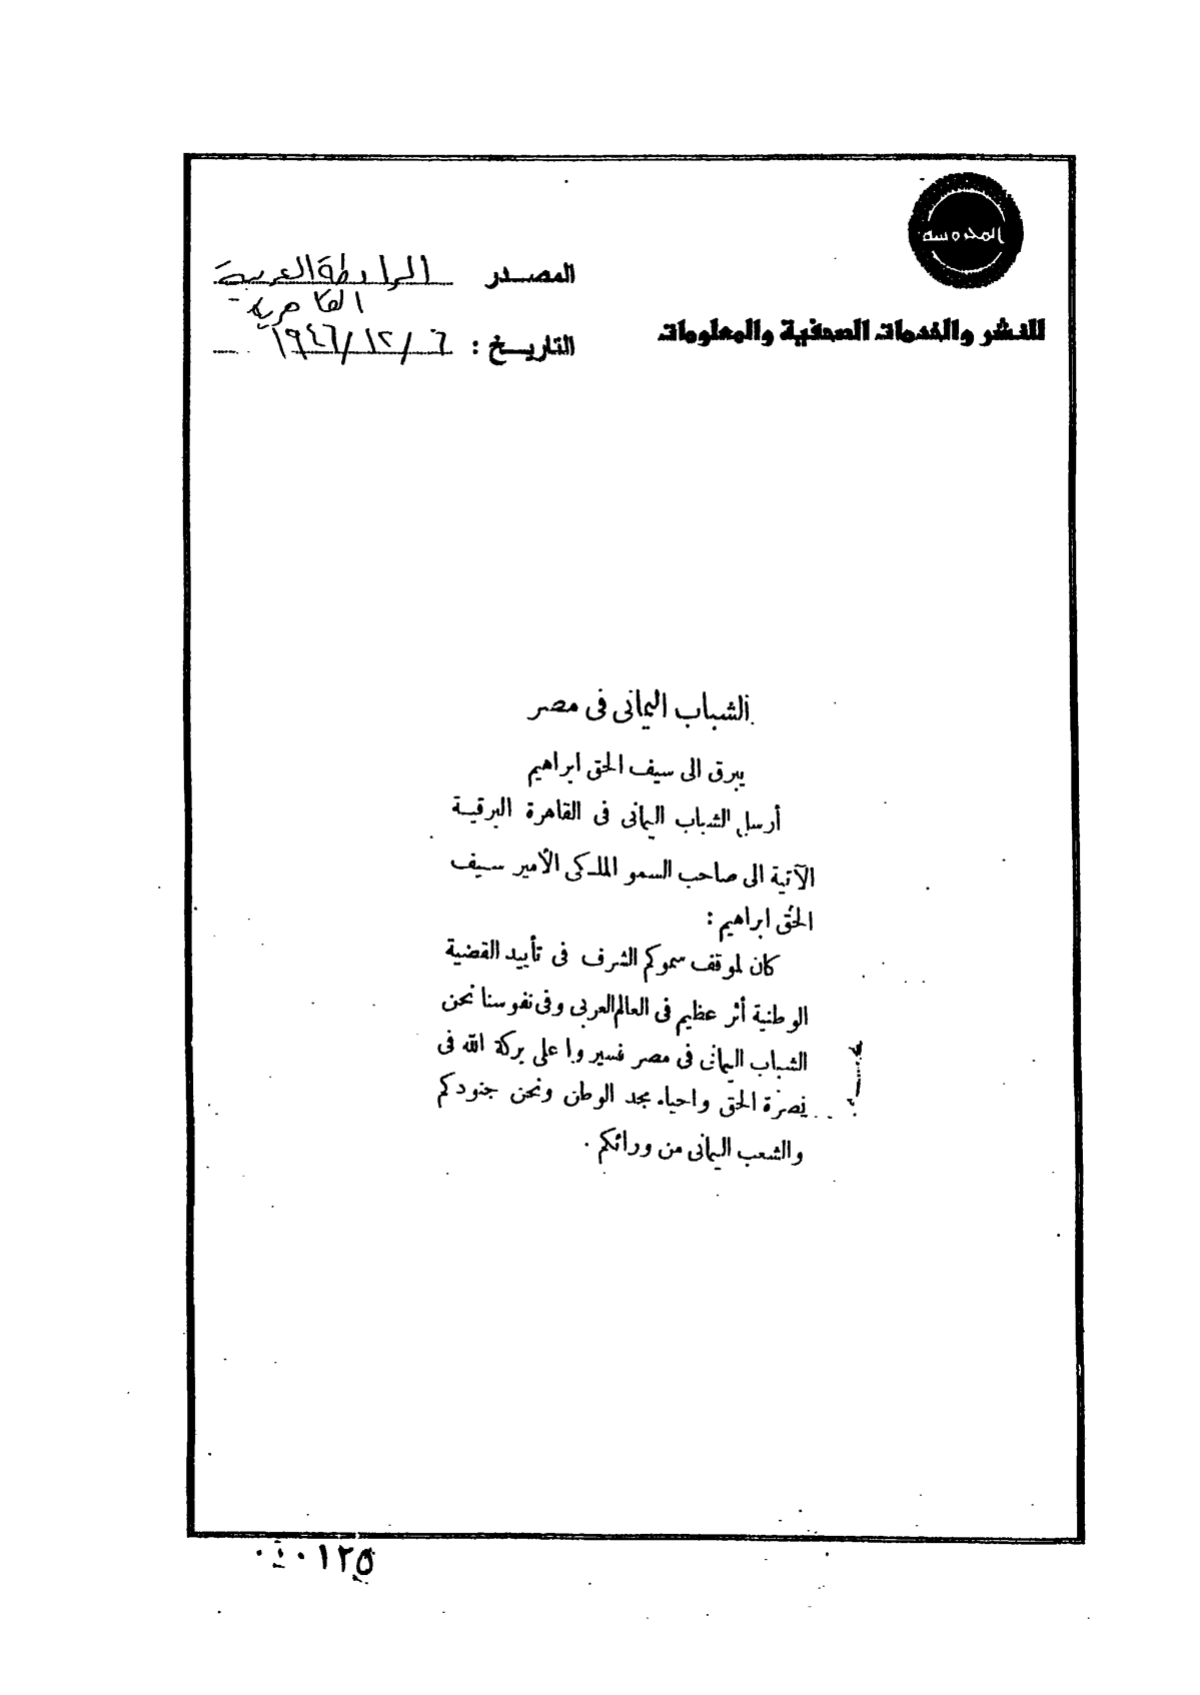 المحروسة
للنشر والخدمات الصحفية والمعلومات
المصدر الرابطة العربية
القاهرية
التاريخ : ٦ /١٢/ ١٩٤٦
الشباب اليمانى فى مصر
يبرق الى سيف الحق ابراهيم
أرسل الشباب اليمانى فى القاهرة البرقية
الآتية الى صاحب السمو الملكى الأمير سيف
الحق ابراهيم :
كان لموقف سموكم الشرف فى تأييد القضية
الوطنية أثر عظيم فى العالم العربى وفى نفوسنا نحن
الشباب اليمانى فى مصر فسيروا على بركة الله فى
نصرة الحق واحياء مجد الوطن ونحن جنودكم
والشعب اليمانى من ورائكم .
١٢٥